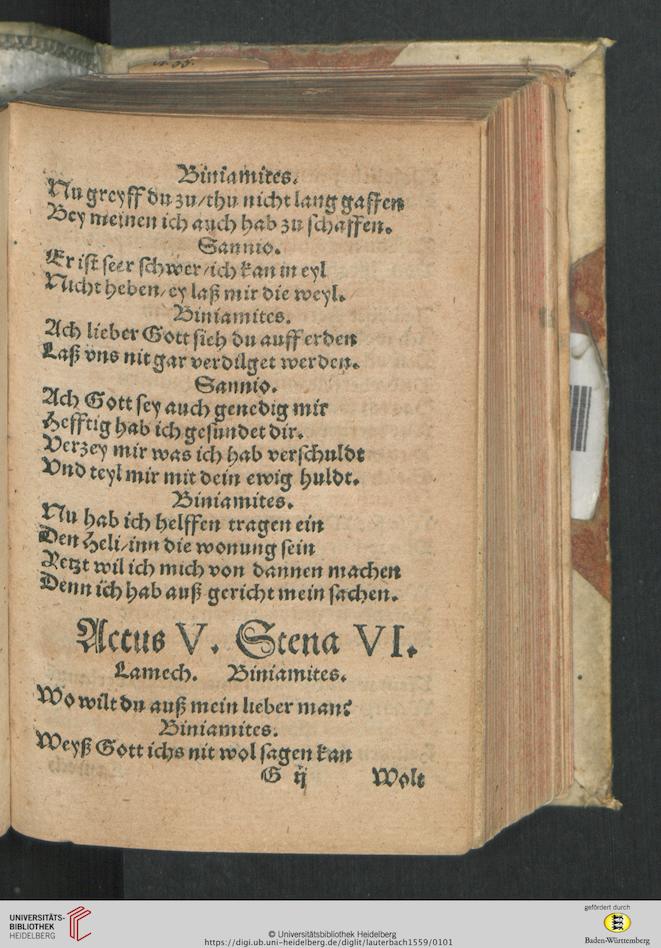 Biniamites.
Nu greyff du zu/thu nicht lang gaffen
Bey meinen ich auch hab zu schaffen.
Sannio.
Er ist seer schwer/ich kan in eyl
Nicht heben/ey laß mir die weyl.
Biniamites.
Ach lieber Gott sieh du auff erden
Laß vns nit gar verdilget werden.
Sannio.
Ach Gott sey auch genedig mir
Hefftig hab ich gesundet dir.
Verzey mir was ich hab verschuldt
Vnd teyl mir mit dein ewig huldt.
Biniamites.
Nu hab ich helffen tragen ein
Den Heli/inn die wonung sein
Yetzt wil ich mich von dannen machen
Denn ich hab auß gericht mein sachen.
Actus V. Scena VI.
Lamech. Biniamites.
Wo wilt du auß mein lieber man?
Biniamites.
Weyß Gott ichs nit wol sagen kan
G ij Wolt
UNIVERSITÄTS-
BIBLIOTHEK
HEIDELBERG
© Universitätsbibliothek Heidelberg
https://digi.ub.uni-heidelberg.de/diglit/lauterbach1559/0101
gefördert durch
Baden-Württemberg